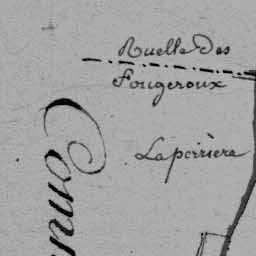 Ruelle Des
Fougeroux
Laperriere
Com